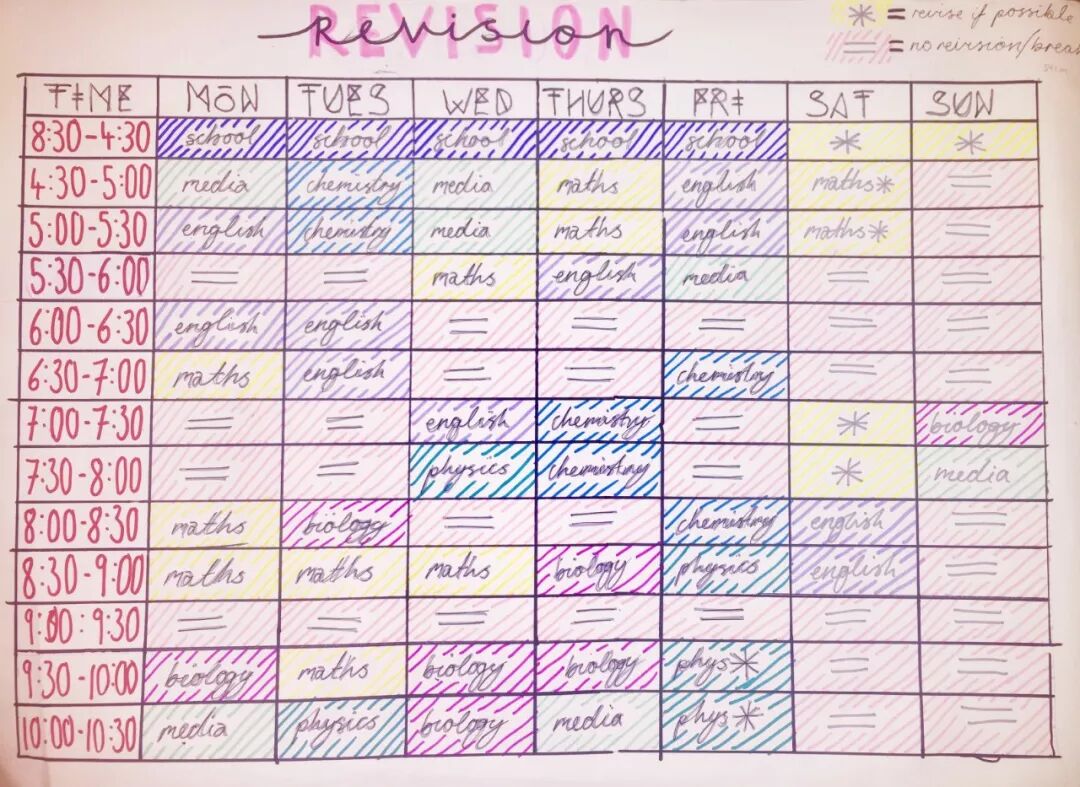 REVISION
Revision
* = revise if possible
= = no reivsion/break
TIME MON TUES WED THURS FRI SAT SUN
8:30-4:30 school school school school school * *
4:30-5:00 media chemistry media maths english maths* =
5:00-5:30 english chemistry media maths english maths* =
5:30-6:00 = = maths english media = =
6:00-6:30 english english = = = = =
6:30-7:00 maths english = = chemistry = =
7:00-7:30 = = english chemistry = * biology
7:30-8:00 = = physics chemistry = * media
8:00-8:30 maths biology = = chemistry english =
8:30-9:00 maths maths maths biology physics english =
9:00:9:30 = = = = = = =
9:30-10:00 biology maths biology biology phys* = =
10:00-10:30 media physics biology media phys* = =